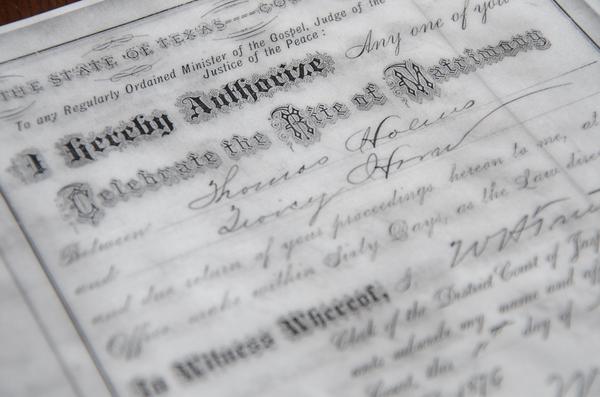 THE STATE OF TEXAS
To any Regularly Ordained Minister of the Gospel, Judge of the
Justice of the Peace:
Any one of you
I hereby Authorize
Celebrate the Rite of Matrimony
Between Thomas Holmes
and
and due return of your proceedings hereon to me, at
Office, make within Sixty Days, as the Law
In Witness Whereof, I,
Clerk of the District Court of
my name and
Court, this day of
1876